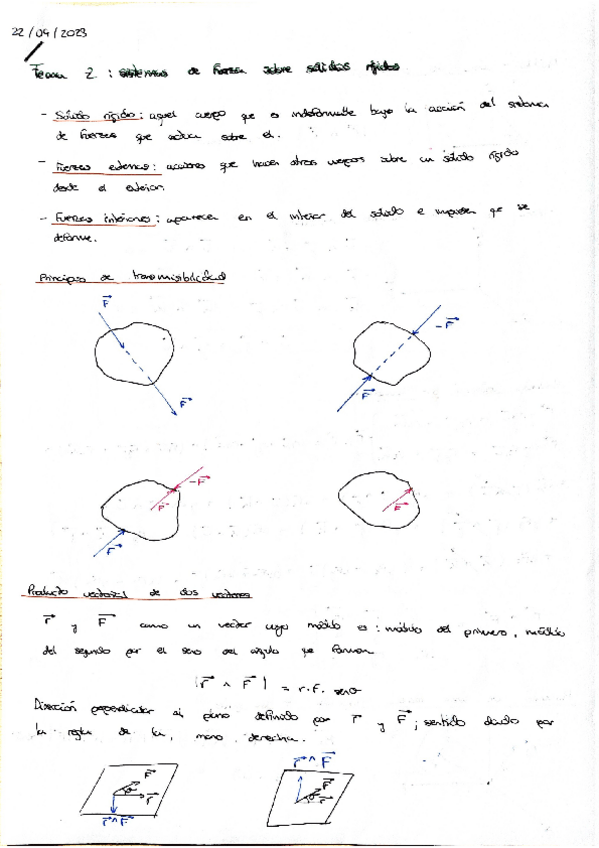 22/09/2023
Tema 2: sistemas de fuerza sobre sólidos rígidos
- Sólido rígido: aquel cuerpo que es indeformable bajo la acción del sistema
de fuerzas que actúa sobre él.
- Fuerzas externas: acciones que hacen otros cuerpos sobre un sólido rígido
desde el exterior.
- Fuerzas interiores: aparecen en el interior del sólido e impiden que se
deforme.
Principio de transmisibilidad
F⃗ -F⃗
F⃗ F⃗
-F⃗
F⃗ F⃗
F⃗
Producto vectorial de dos vectores
r⃗ y F⃗ como un vector cuyo módulo es: módulo del primero, módulo
del segundo por el seno del ángulo que forman
|r⃗ ∧ F⃗| = r.F. senθ
Dirección perpendicular al plano definido por r⃗ y F⃗; sentido dado por
la regla de la mano derecha.
r⃗∧F⃗
F⃗ F⃗
θ r⃗ θ r⃗
r⃗∧F⃗